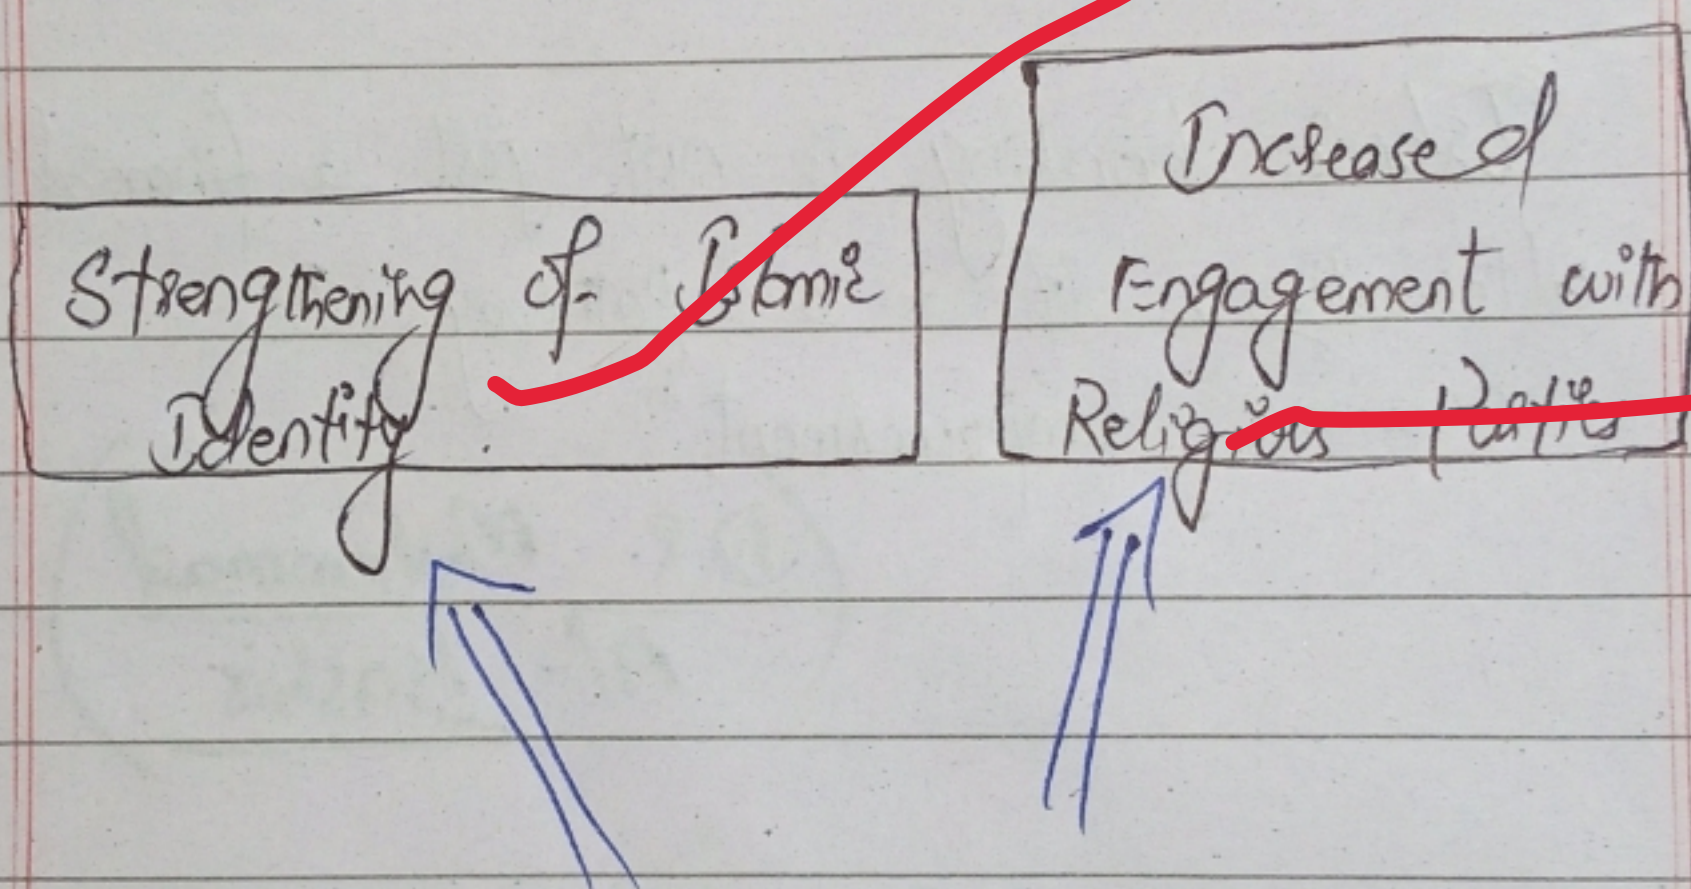 Strengthening of Islamic
Identity.
Increased
Engagement with
Religious Parties